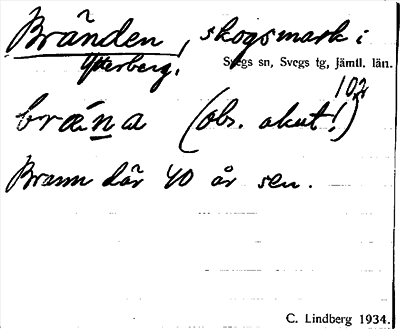 Bränden, skogsmark i
Ytterberg.
Svegs sn, Svegs tg, Jämtl. län.
102
bräna (obs. akut!)
Brann där 40 år sen.
C. Lindberg 1934.